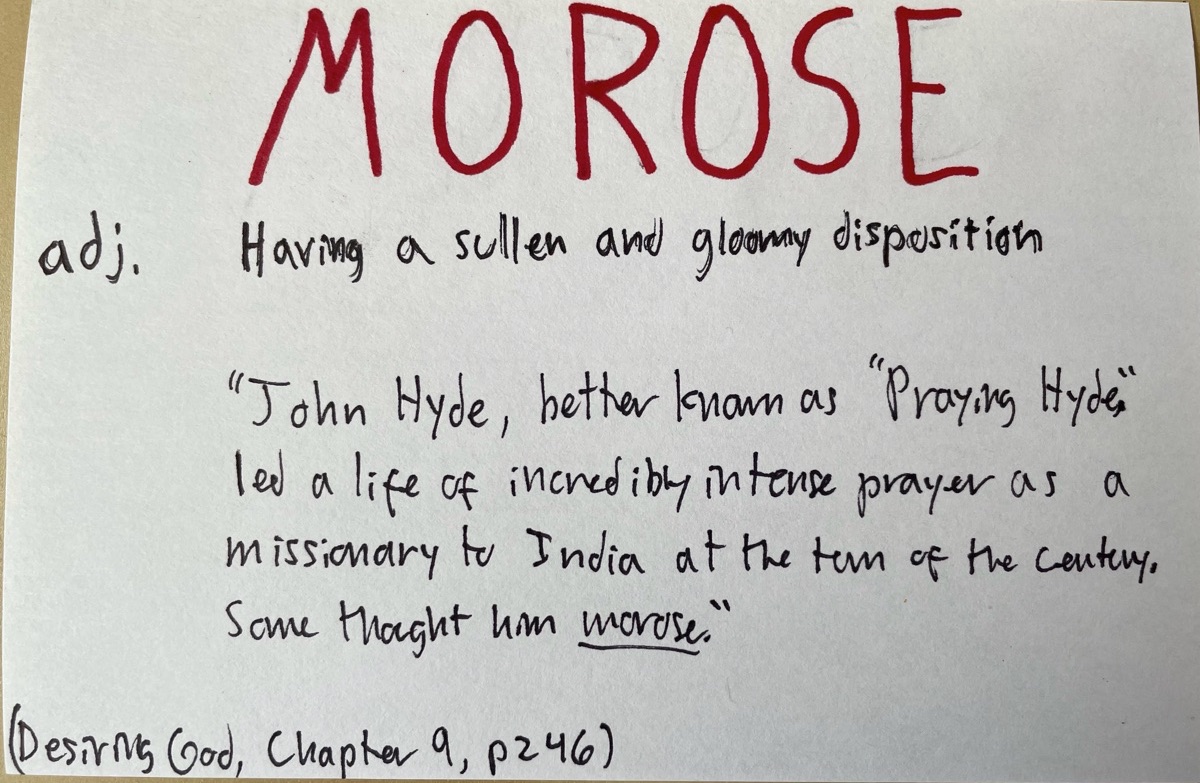 MOROSE
adj. Having a sullen and gloomy disposition
“John Hyde, better known as “Praying Hyde,”
led a life of incredibly intense prayer as a
missionary to India at the turn of the century.
Some thought him morose.”
(Desiring God, Chapter 9, p246)